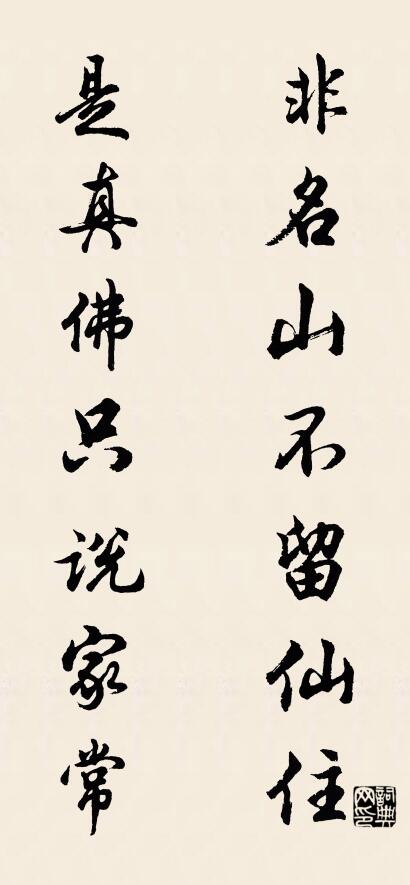 非名山不留仙住
是真佛只说家常
詞典网印